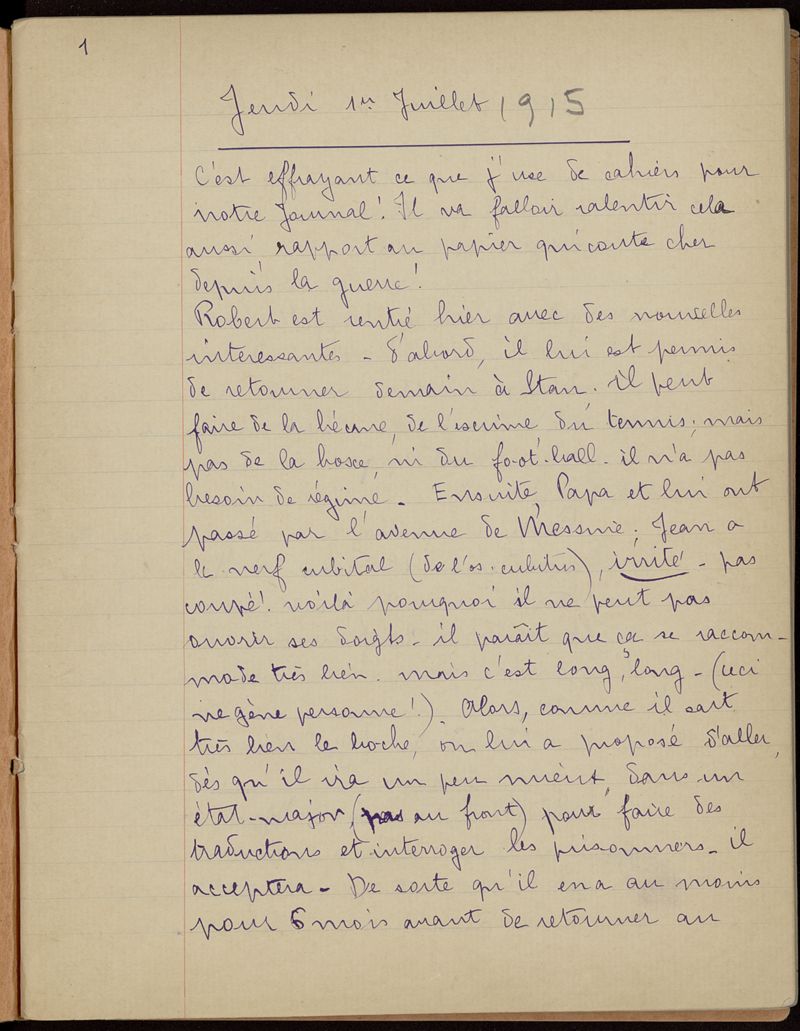 1
Jeudi 1er Juillet 1915
C'est effrayant ce que j'use de cahiers pour
notre Journal! Il va falloir ralentir cela
aussi, rapport au papier qui coute cher
depuis la guerre!
Robert est rentré hier avec des nouvelles
intéressantes - d'abord, il lui est permis
de retourner demain à Stan. il peut
faire de la bécane, de l'escrime du tennis; mais
pas de la boxe, ni du foot-ball. il n'a pas
besoin de régime. Ensuite, Papa et lui ont
passé par l'avenue de Messine; Jean a
le nerf cubital (de l'os. cubitus), irrité - pas
coupé! voilà pourquoi il ne peut pas
ouvrir ses doigts - il paraît que ça se raccom-
mode très bien. mais c'est long, long - (ceci
ne gêne personne!). Alors, comme il sait
très bien le boche, on lui a proposé d'aller,
dès qu'il ira un peu mieux, dans un
état-major, (pas au front) pour faire des
traductions et interroger les prisonniers - il
acceptera - De sorte qu'il en a au moins
pour 6 mois avant de retourner au